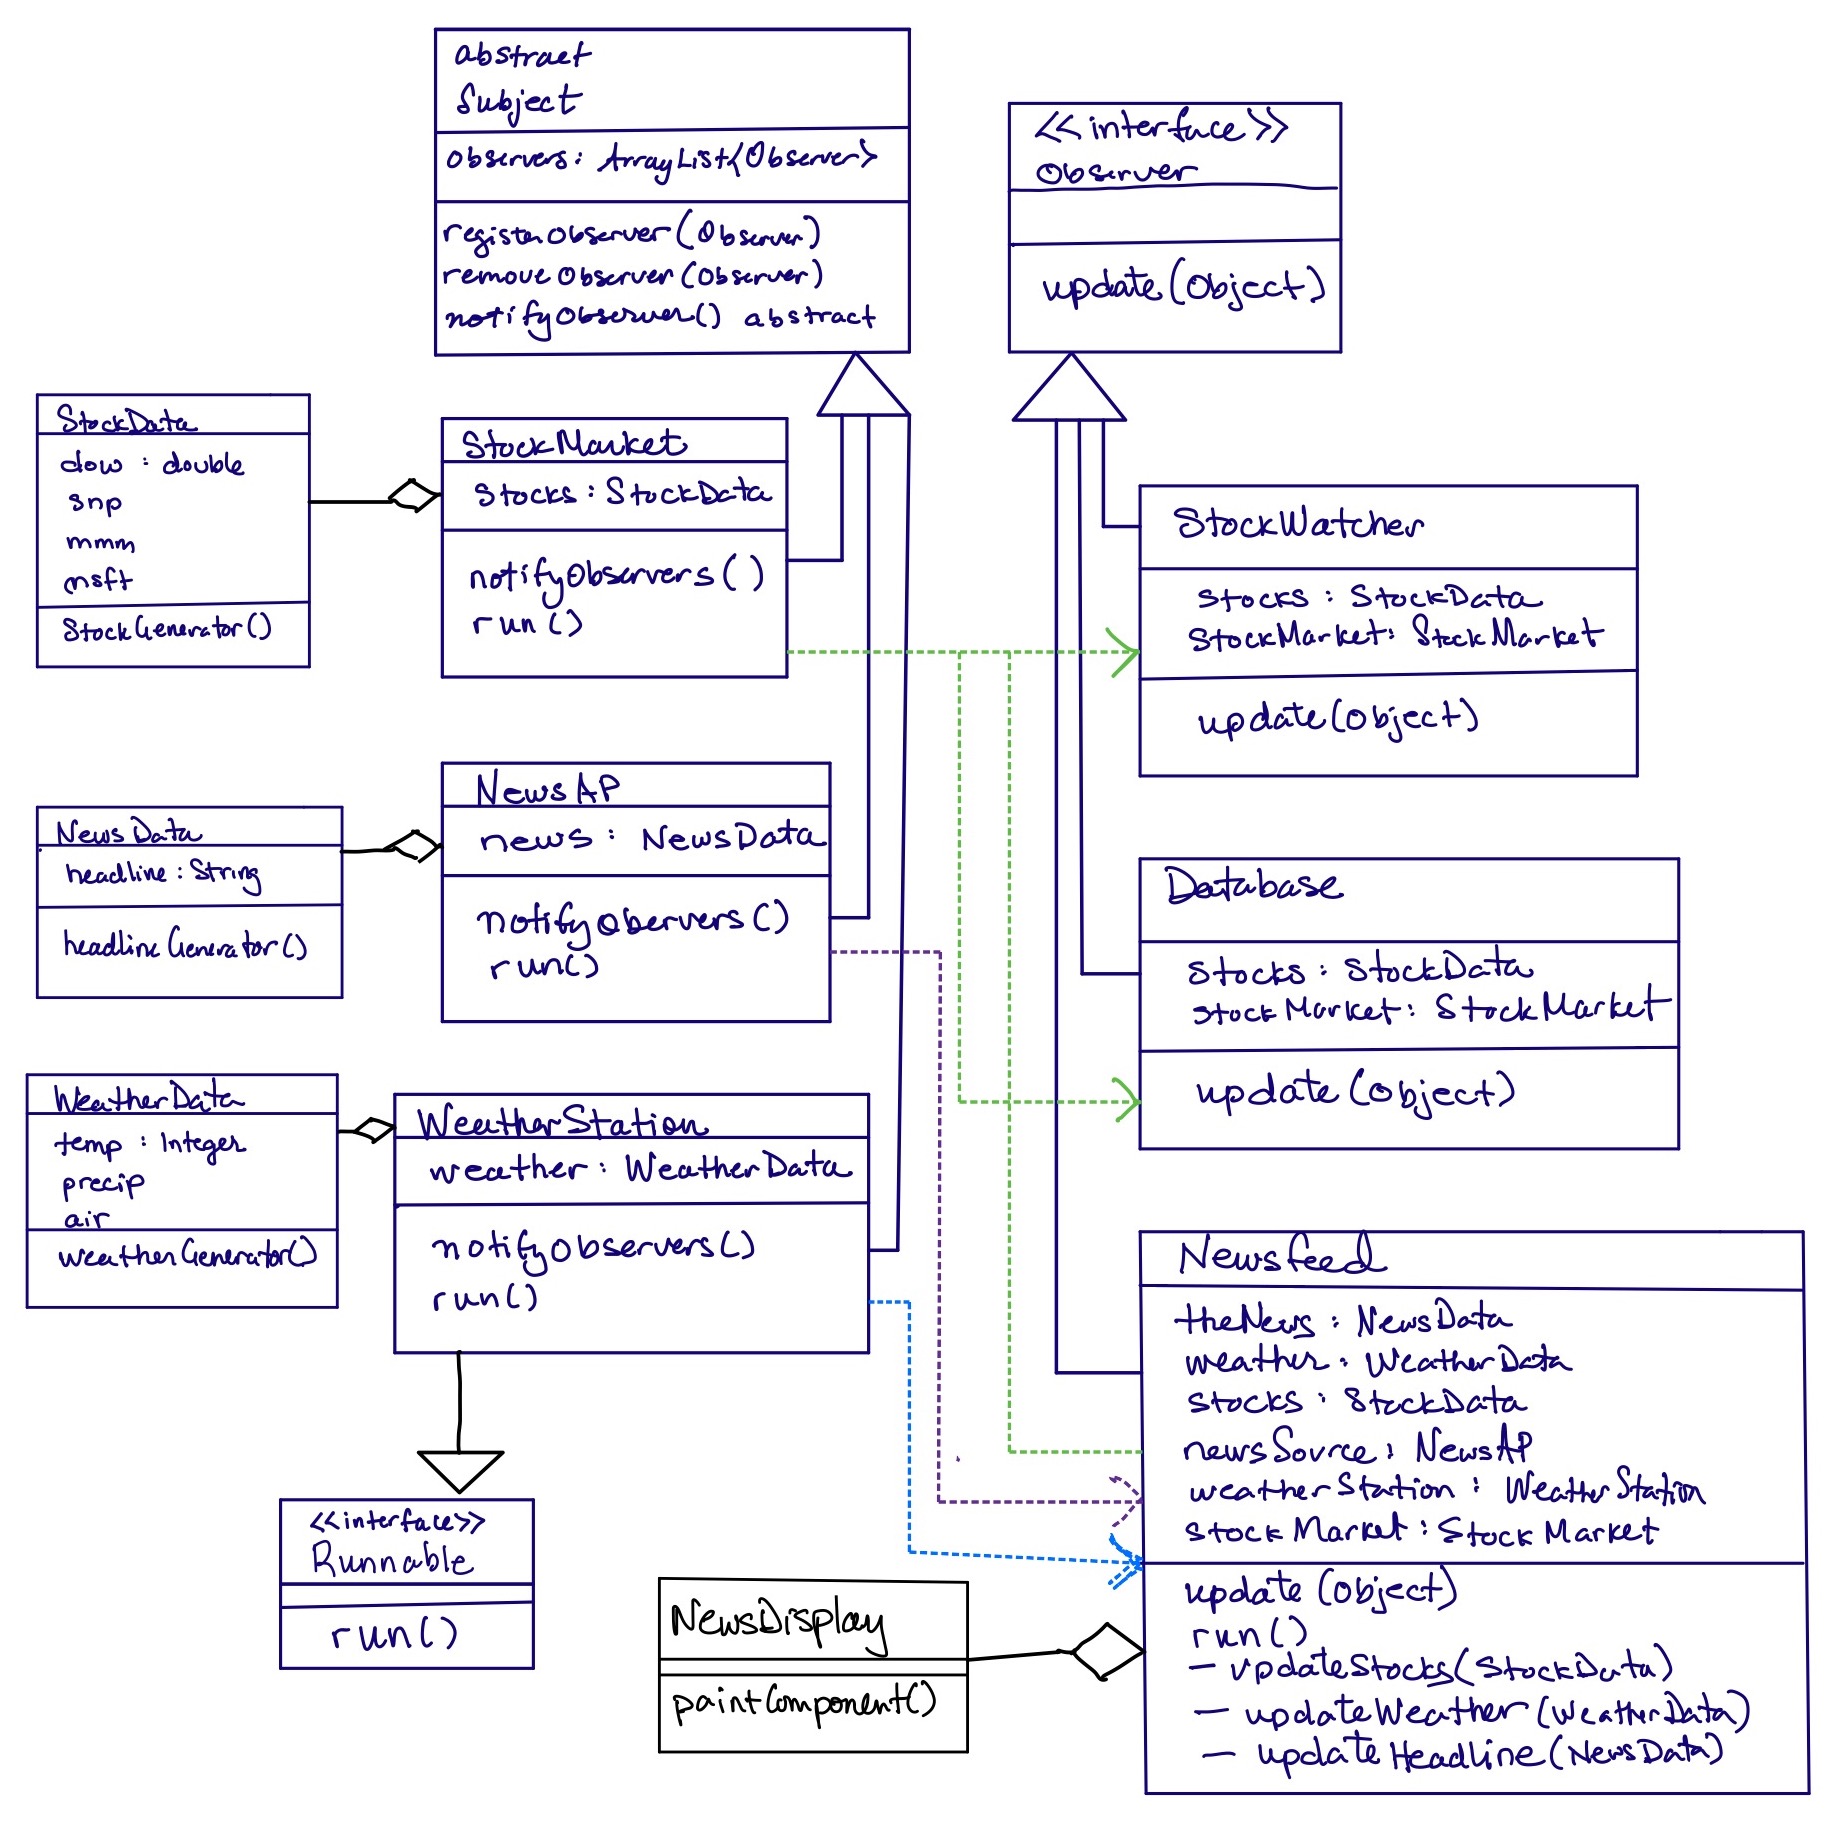 abstract
Subject
observers: ArrayList<Observer>
registerObserver(Observer)
removeObserver(Observer)
notifyObserver() abstract
<<interface>>
Observer
update(Object)
StockData
dow : double
snp
mmm
msft
StockGenerator()
StockMarket
stocks : StockData
notifyObservers()
run()
StockWatcher
stocks : StockData
StockMarket: StockMarket
update(Object)
NewsData
headline : String
headlineGenerator()
NewsAP
news : NewsData
notifyObervers()
run()
Database
stocks : StockData
stockMarket : StockMarket
update(Object)
WeatherData
temp : Integer
precip
air
weatherGenerator()
WeatherStation
weather : WeatherData
notifyObservers()
run()
Newsfeed
theNews : NewsData
weather : WeatherData
stocks : StockData
newsSource : NewsAP
weatherStation : WeatherStation
stockMarket : StockMarket
update(Object)
run()
– updateStocks(StockData)
– updateWeather(WeatherData)
– updateHeadline(NewsData)
<<interface>>
Runnable
run()
NewsDisplay
paintComponent()